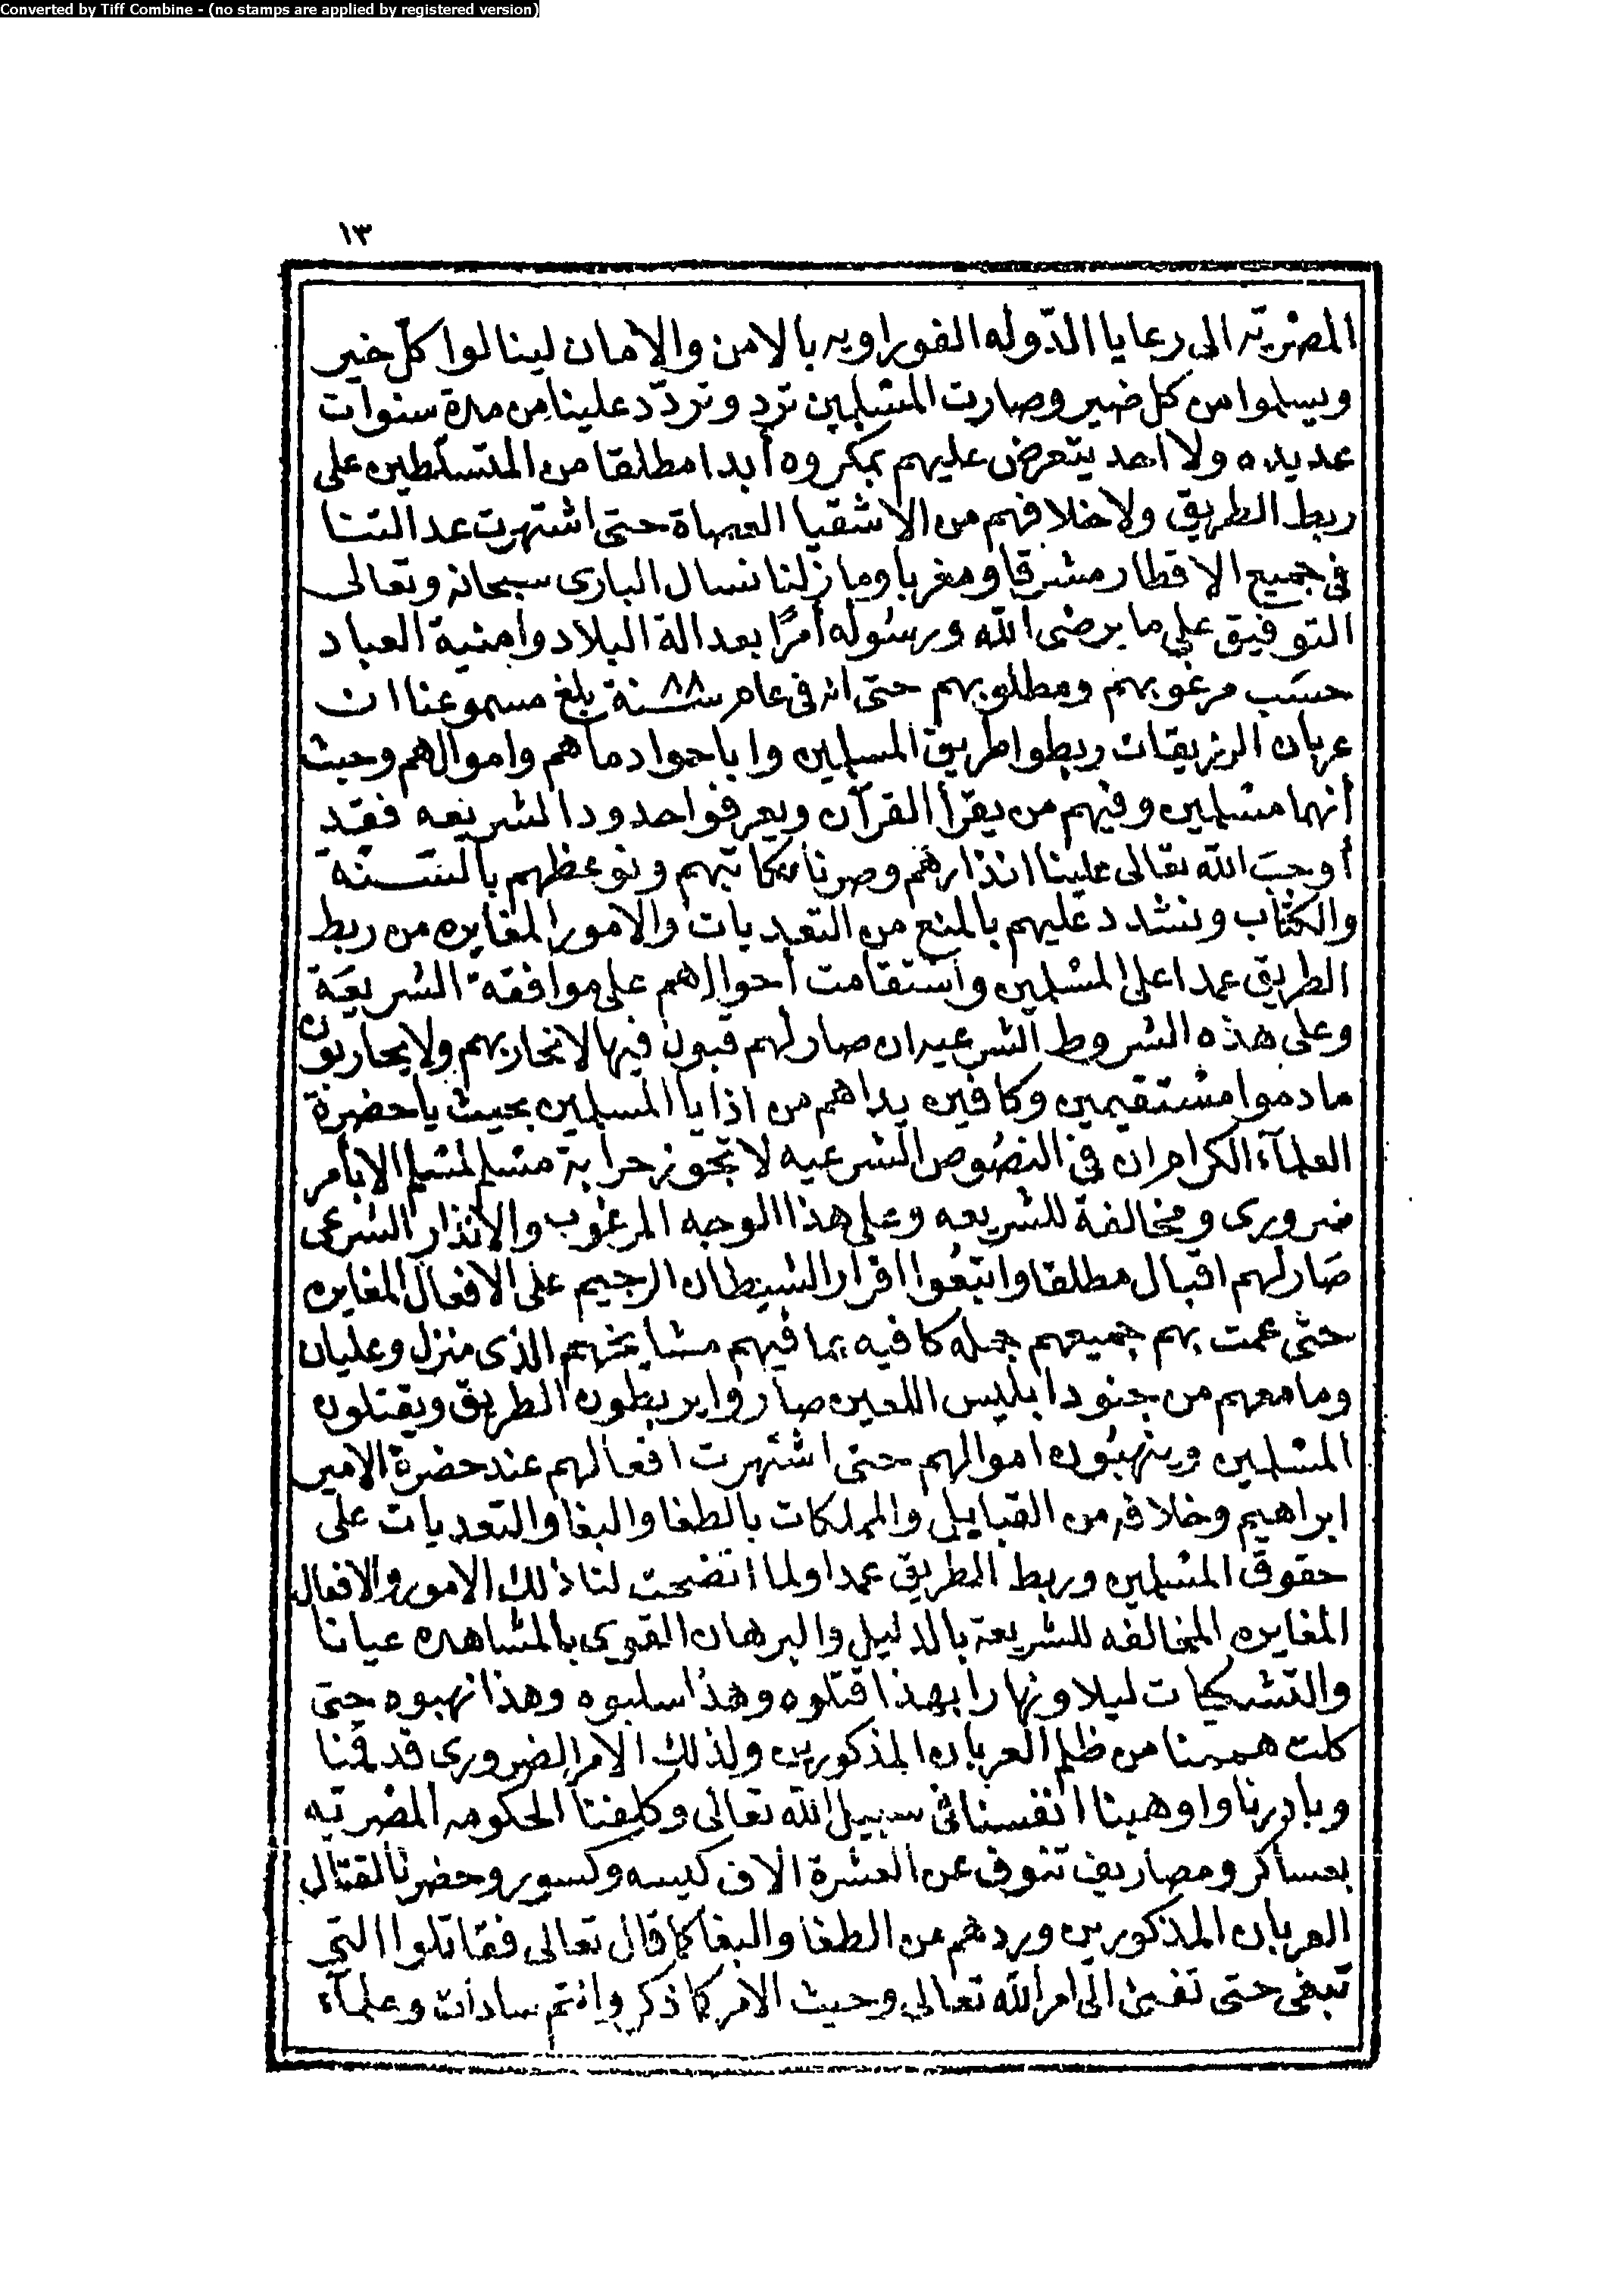 Converted by Tiff Combine - (no stamps are applied by registered version)
١٣
المصريّه الى رعايا الدّوله الفوراويه بالامن والامان لينالوا كلّ خير
ويسلموا من كل ضير وصارت المسلمين ترد وتردّد علينا من مدة سنوات
عديده ولا احد يتعرض عليهم بمكروه أبدا مطلقا من المتسلّطين على
ربط الطريق ولا خلافهم من الاشقيا العصاة حتى اشتهرت عدالتنا
فى جميع الاقطار مشرقا ومغربا وما زلنا نسال البارى سبحانه وتعالى
التوفيق على ما يرضى الله ورسُوله أمرًا بعدالة البلاد وامنية العباد
حسَب مرغوبهم ومطلوبهم حتى انه فى عام سنة ٨٨ بلغ مسموعنا ان
عربان الرزيقات ربطوا طريق المسلمين واباحوا دماهم واموالهم وحيث
أنها مسلمين وفيهم من يقرأ القرآن ويعرفوا حدود الشريعه فقد
أوجبَ الله تعالى علينا انذارهم وصرنا نكاتبهم ونوعظهم بالسّنة
والكتاب ونشدد عليهم بالمنع من التعديات والامور المغايره من ربط
الطريق عمدا على المسلمين واستقامت أحوالهم على موافقة الشريعَة
وعلى هذه الشروط الشرعيه ان صار لهم قبول فيها لا نحاربهم ولا يحاربون
مادموا مستقيمين وكافين يداهم من اذايا المسلمين بحيث يا حضرة
العلمآء الكرام ان فى النصُوص الشرعيه لا تجوز حرابة مسلم لمسلم الا بأمر
ضرورى ومخالفة للشريعه وعلى هذا الوجه المرغوب والانذار الشرعى
صَار لهم اقبال مطلقا واتبعُوا اقرار الشيطان الرجيم على الافعال المغايره
حتى عمت بهم جميعهم جمله كافيه بما فيهم مشايخهم الذى منزل وعليان
وما معهم من جنود ابليس اللعين صاروا يربطون الطريق ويقتلون
المسلمين وينهبُون اموالهم حتى اشتهرت افعالهم عند حضرة الامير
ابراهيم وخلافه من القبايل والمملكات بالطغا والبغا والتعديات على
حقوق المسلمين وربط الطريق عمدا ولما اتضحت لنا ذلك الامور والافعال
المغايره المخالفه للشريعة بالدليل والبرهان القوى بالمشاهده عيانا
والتشكيات ليلا ونهارا بهذا قتلوه وهذا سلبوه وهذا نهبوه حتى
كلت هممنا من ظلم العربان المذكورين ولذلك الامر الضرورى قد قمنا
وبادرنا واوهبنا انفسنا فى سبيل الله تعالى وكلفنا الحكومه المصريّه
بعساكر ومصاريف تنوف عن العشرة الاف كيسه وكسور وحضرنا لقتال
العربان المذكورين وردهم عن الطغا والبغا كما قال تعالى فقاتلوا التى
تبغى حتى تفىء الى امر الله تعالى وحيث الامر كما ذكر وانتم سادات وعلمآء